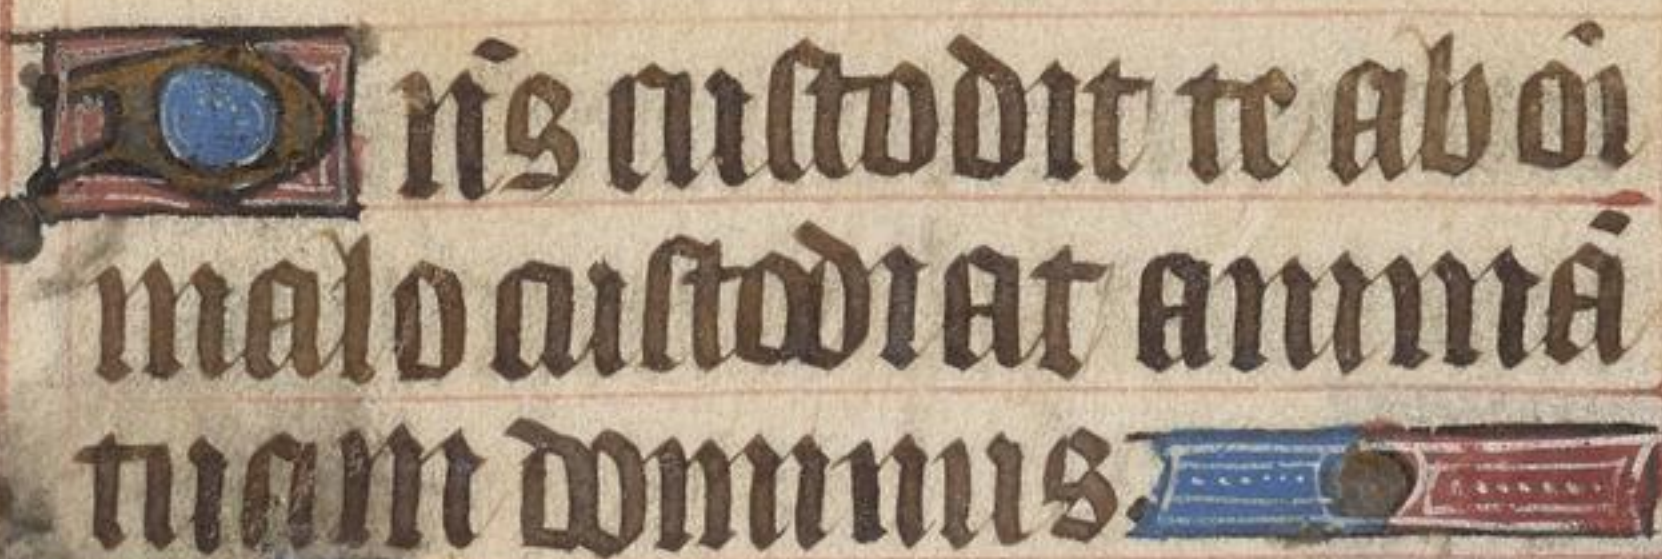 Dn̄s custodit te ab oı̄
malo custodiat animā
tuam dominus.